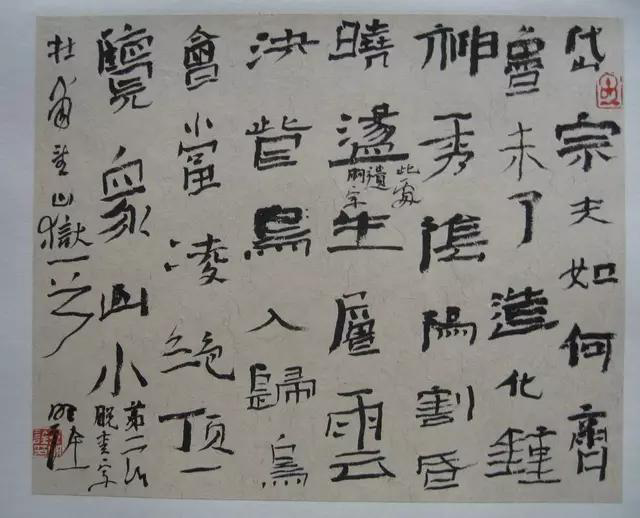 岱宗夫如何齊
魯未了造化鍾
神秀陰陽割昏
曉盪生層雲
此處遺
胸字
決眥鳥入歸鳥
會當凌絕頂一
覽眾山小
第二行
脫青字
杜甫望山嶽一首